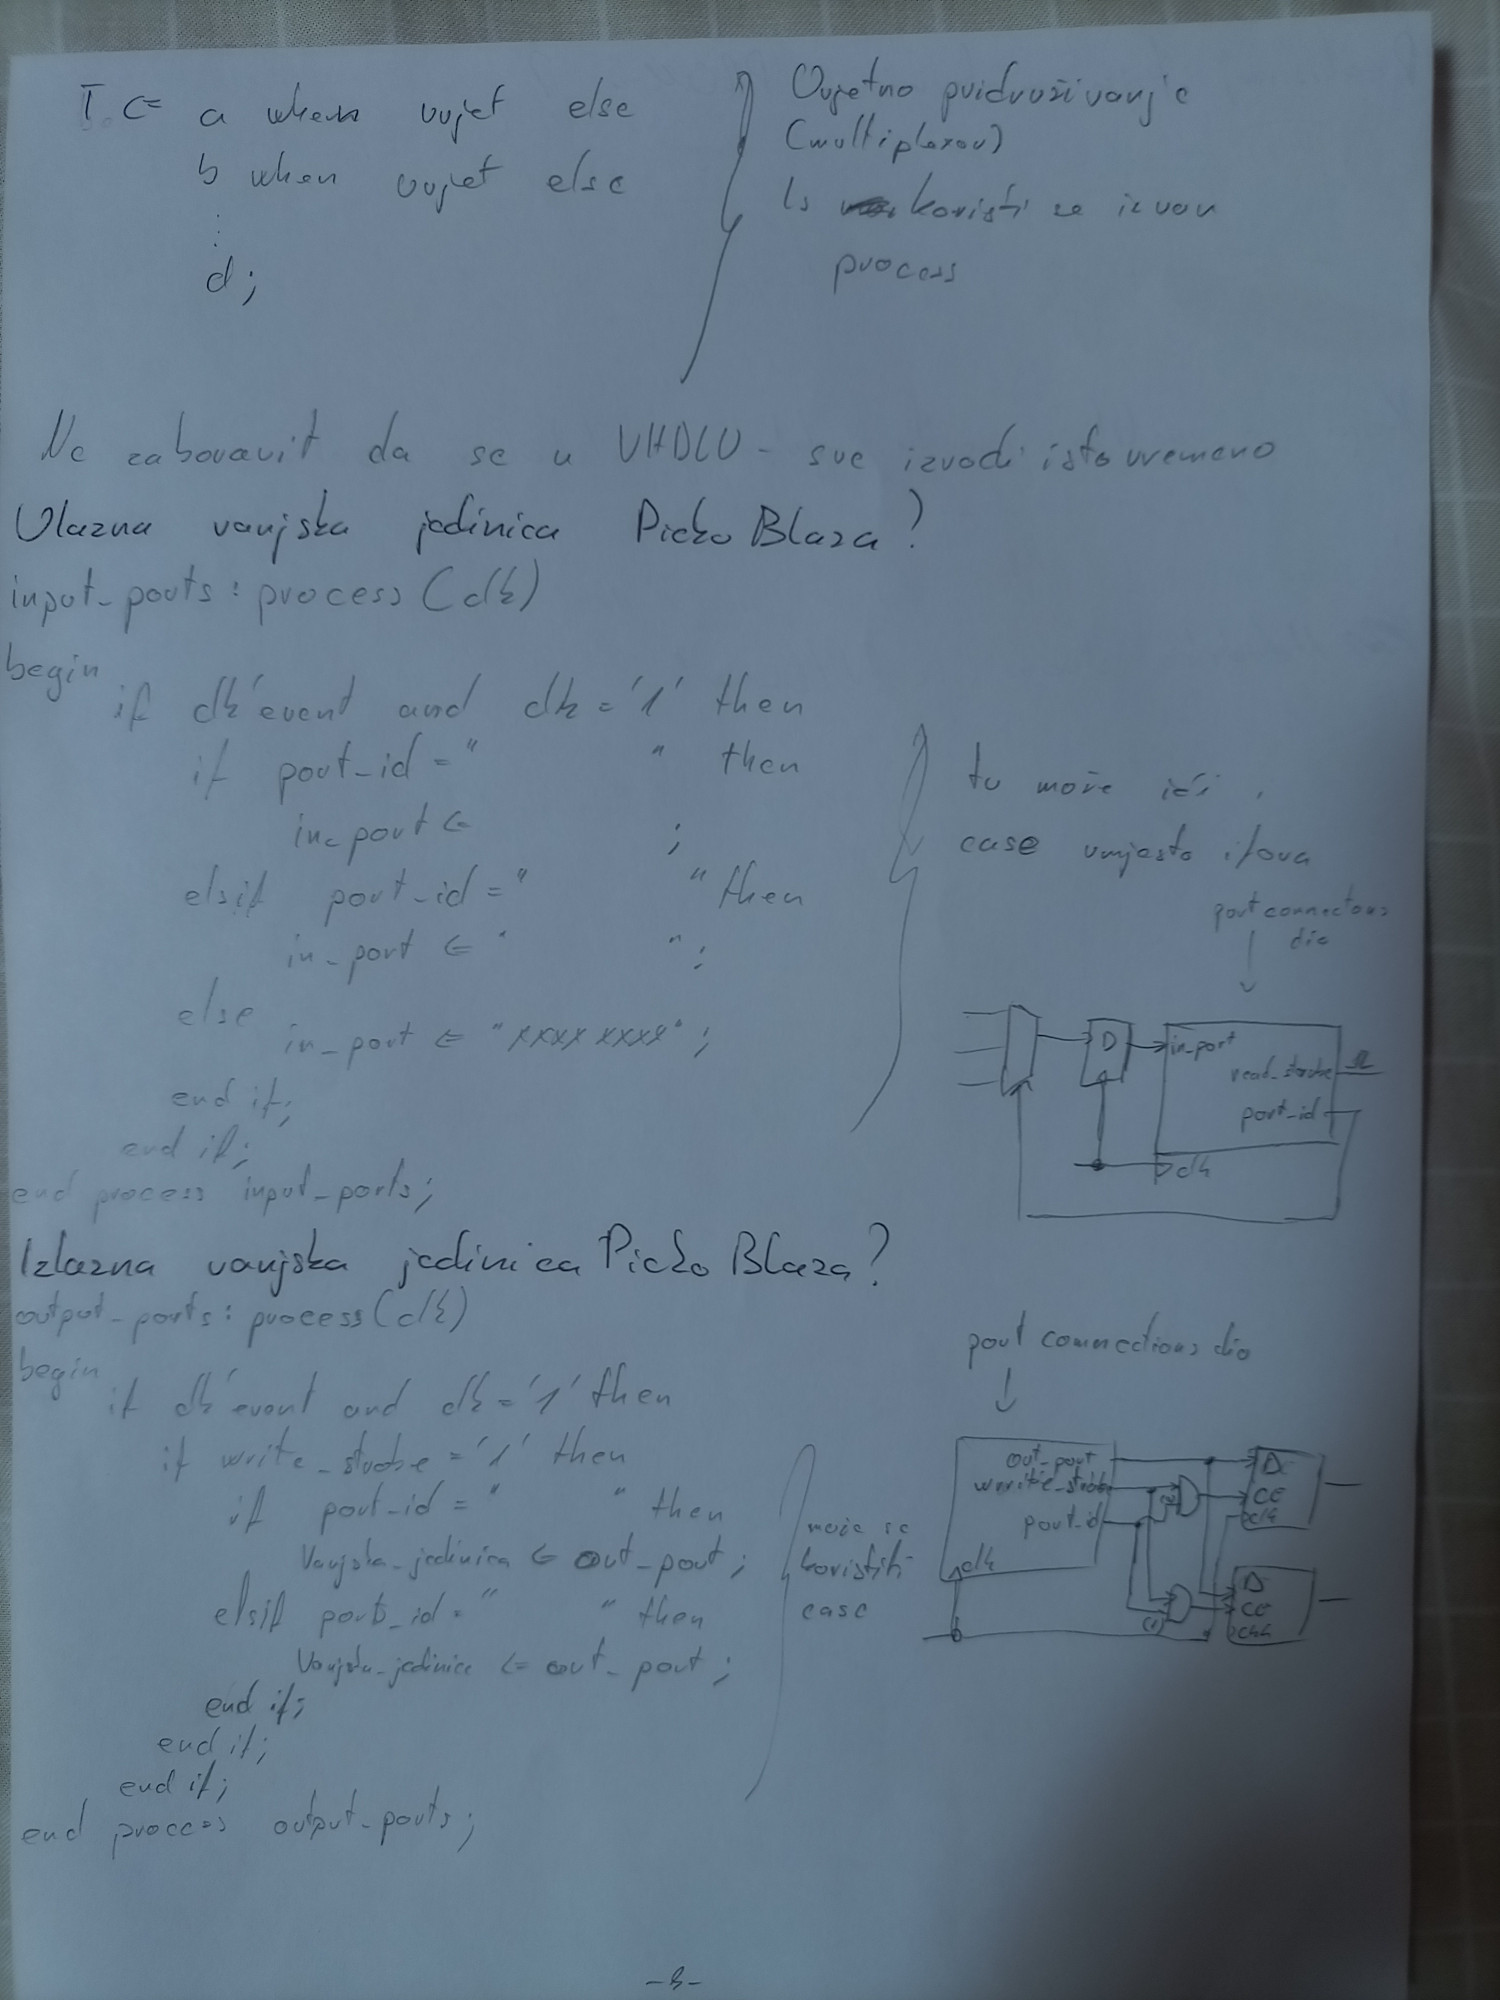 I <= a when uvjet else
b when uvjet else
:
d;
Uvjetno pridruživanje
(multiplexor)
Ls koristi se izvan
process
Ne zaboravit da se u VHDLU - sve izvodi istovremeno
Ulazna vanjska jedinica PicoBlaza?
input_ports : process (clk)
begin
if clk'event and clk = '1' then
if port_id = " " then
in_port <= ;
elsif port_id = " " then
in_port <= " ";
else
in_port <= "XXXX XXXX";
end if;
end if;
end process input_ports;
tu može ići
case umjesto ifova
port connections
dio
D
in_port
read_strobe
port_id
clk
Izlazna vanjska jedinica PicoBlaza?
output_ports : process (clk)
begin
if clk'event and clk = '1' then
if write_strobe = '1' then
if port_id = " " then
Vanjska_jedinica <= out_port;
elsif port_id = " " then
Vanjska_jedinica <= out_port;
end if;
end if;
end if;
end process output_ports;
može se
koristiti
case
port connections dio
out_port
write_strobe
port_id
clk
D
CE
clk
D
CE
clk